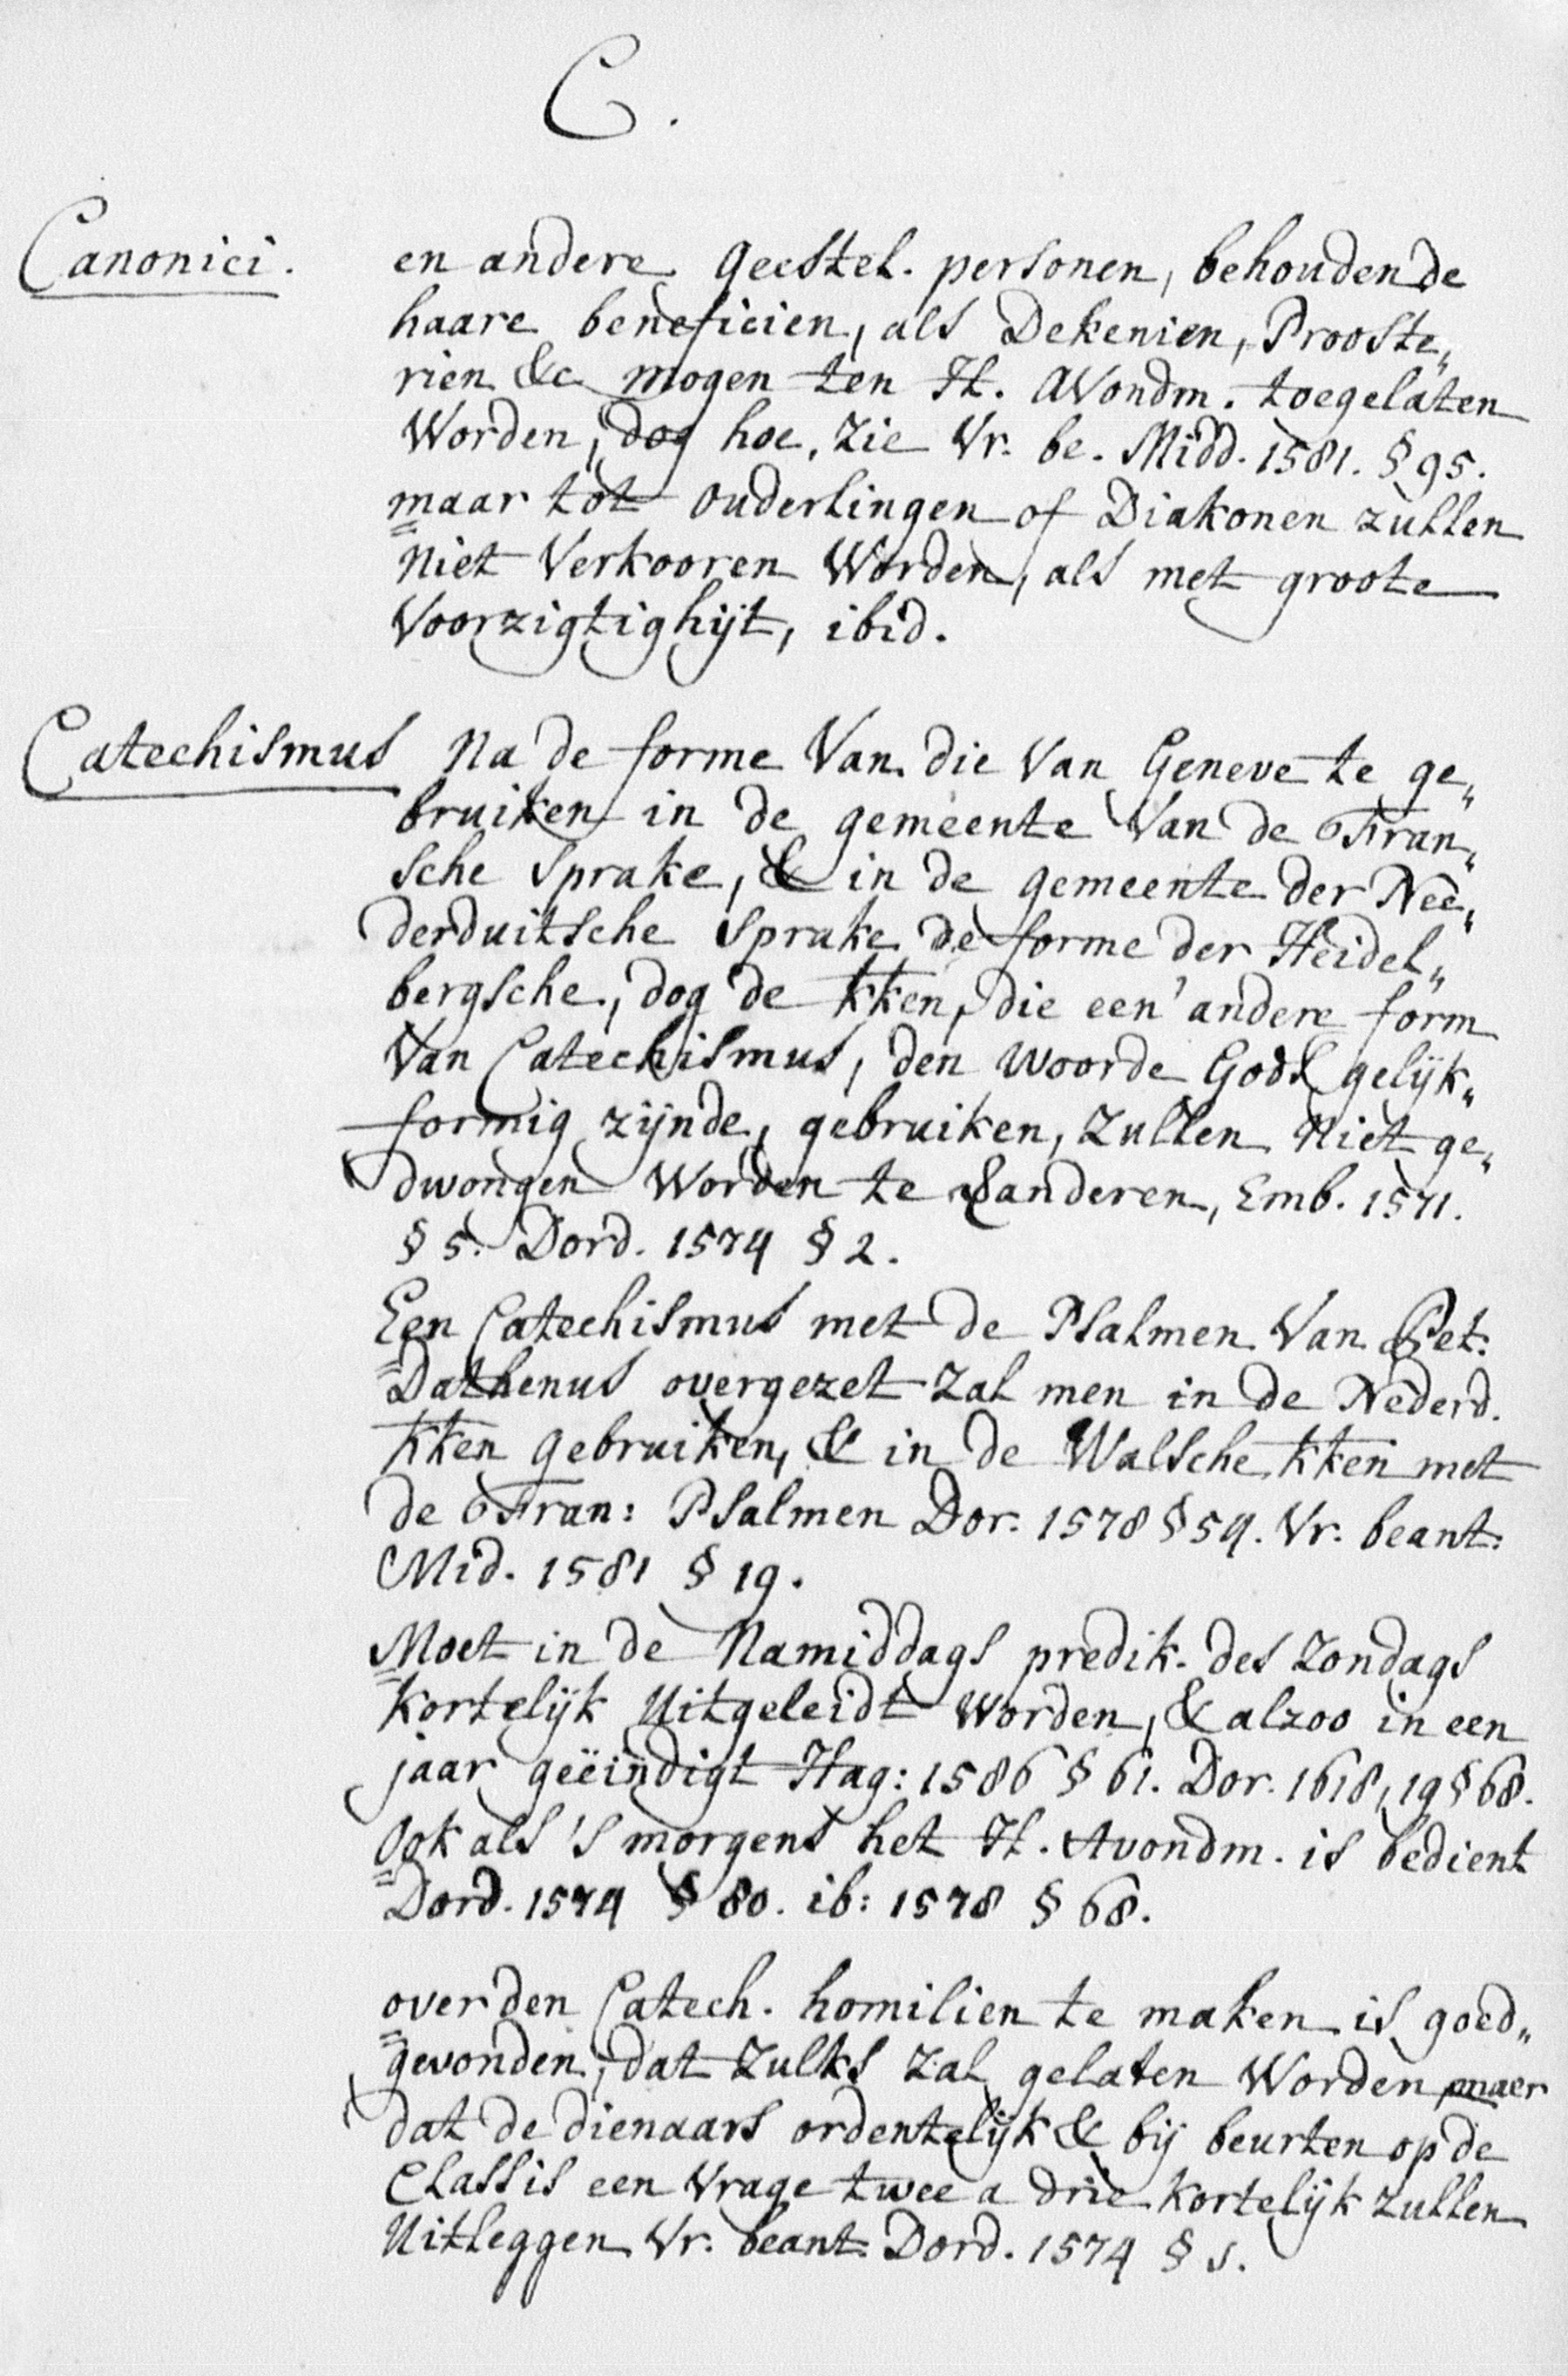 C.
Canonici. en andere geestel. personen, behoudende
haare beneficien, als Dekenien, Prooste„
rien &c mogen ten H. Avondm. toegelaten
Worden, dog hoe, zie Vr. be. Midd. 1581. § 95.
maar tot ouderlingen of Diakonen zullen
niet Verkooren Worden, als met groote
Voorzigtighijt, ibid.
Catechismus Na de forme Van die Van Geneve te ge„
bruiken in de gemeente Van de Fran„
sche Sprake, & in de gemeente der Nee„
derduitsche Sprake de forme der Heidel„
bergsche, dog de kken, die een' andere form
Van Catechismus, den Woorde Gods gelijk„
formig zijnde, gebruiken, zullen niet ge„
dwongen Worden te Randeren, Emb. 1571.
§ 5. Dord. 1574 § 2.
Een Catechismus met de Psalmen Van Pet:
Dathenus overgezet zal men in de Nederd.
kken gebruiken, & in de Walsche kken met
de Fran: Psalmen Dor. 1578 § 54. Vr. beant:
Mid. 1581 § 19.
Moet in de Namiddags predik. des Zondags
kortelijk Uitgeleidt Worden, & alzoo in een
jaar geëindigt Hag: 1586 § 61. Dor. 1618, 19 § 68.
Ook als 's morgens het H. Avondm. is bedient
Dord. 1574 § 80. ib: 1578 § 68.
over den Catech. homilien te maken is goed„
gevonden, dat zulks zal gelaten Worden maer
dat de dienaars ordentelijk & bij beurten op de
Classis een Vrage twee a drie kortelijk zullen
Uitleggen Vr. beant. Dord. 1574 § 5.